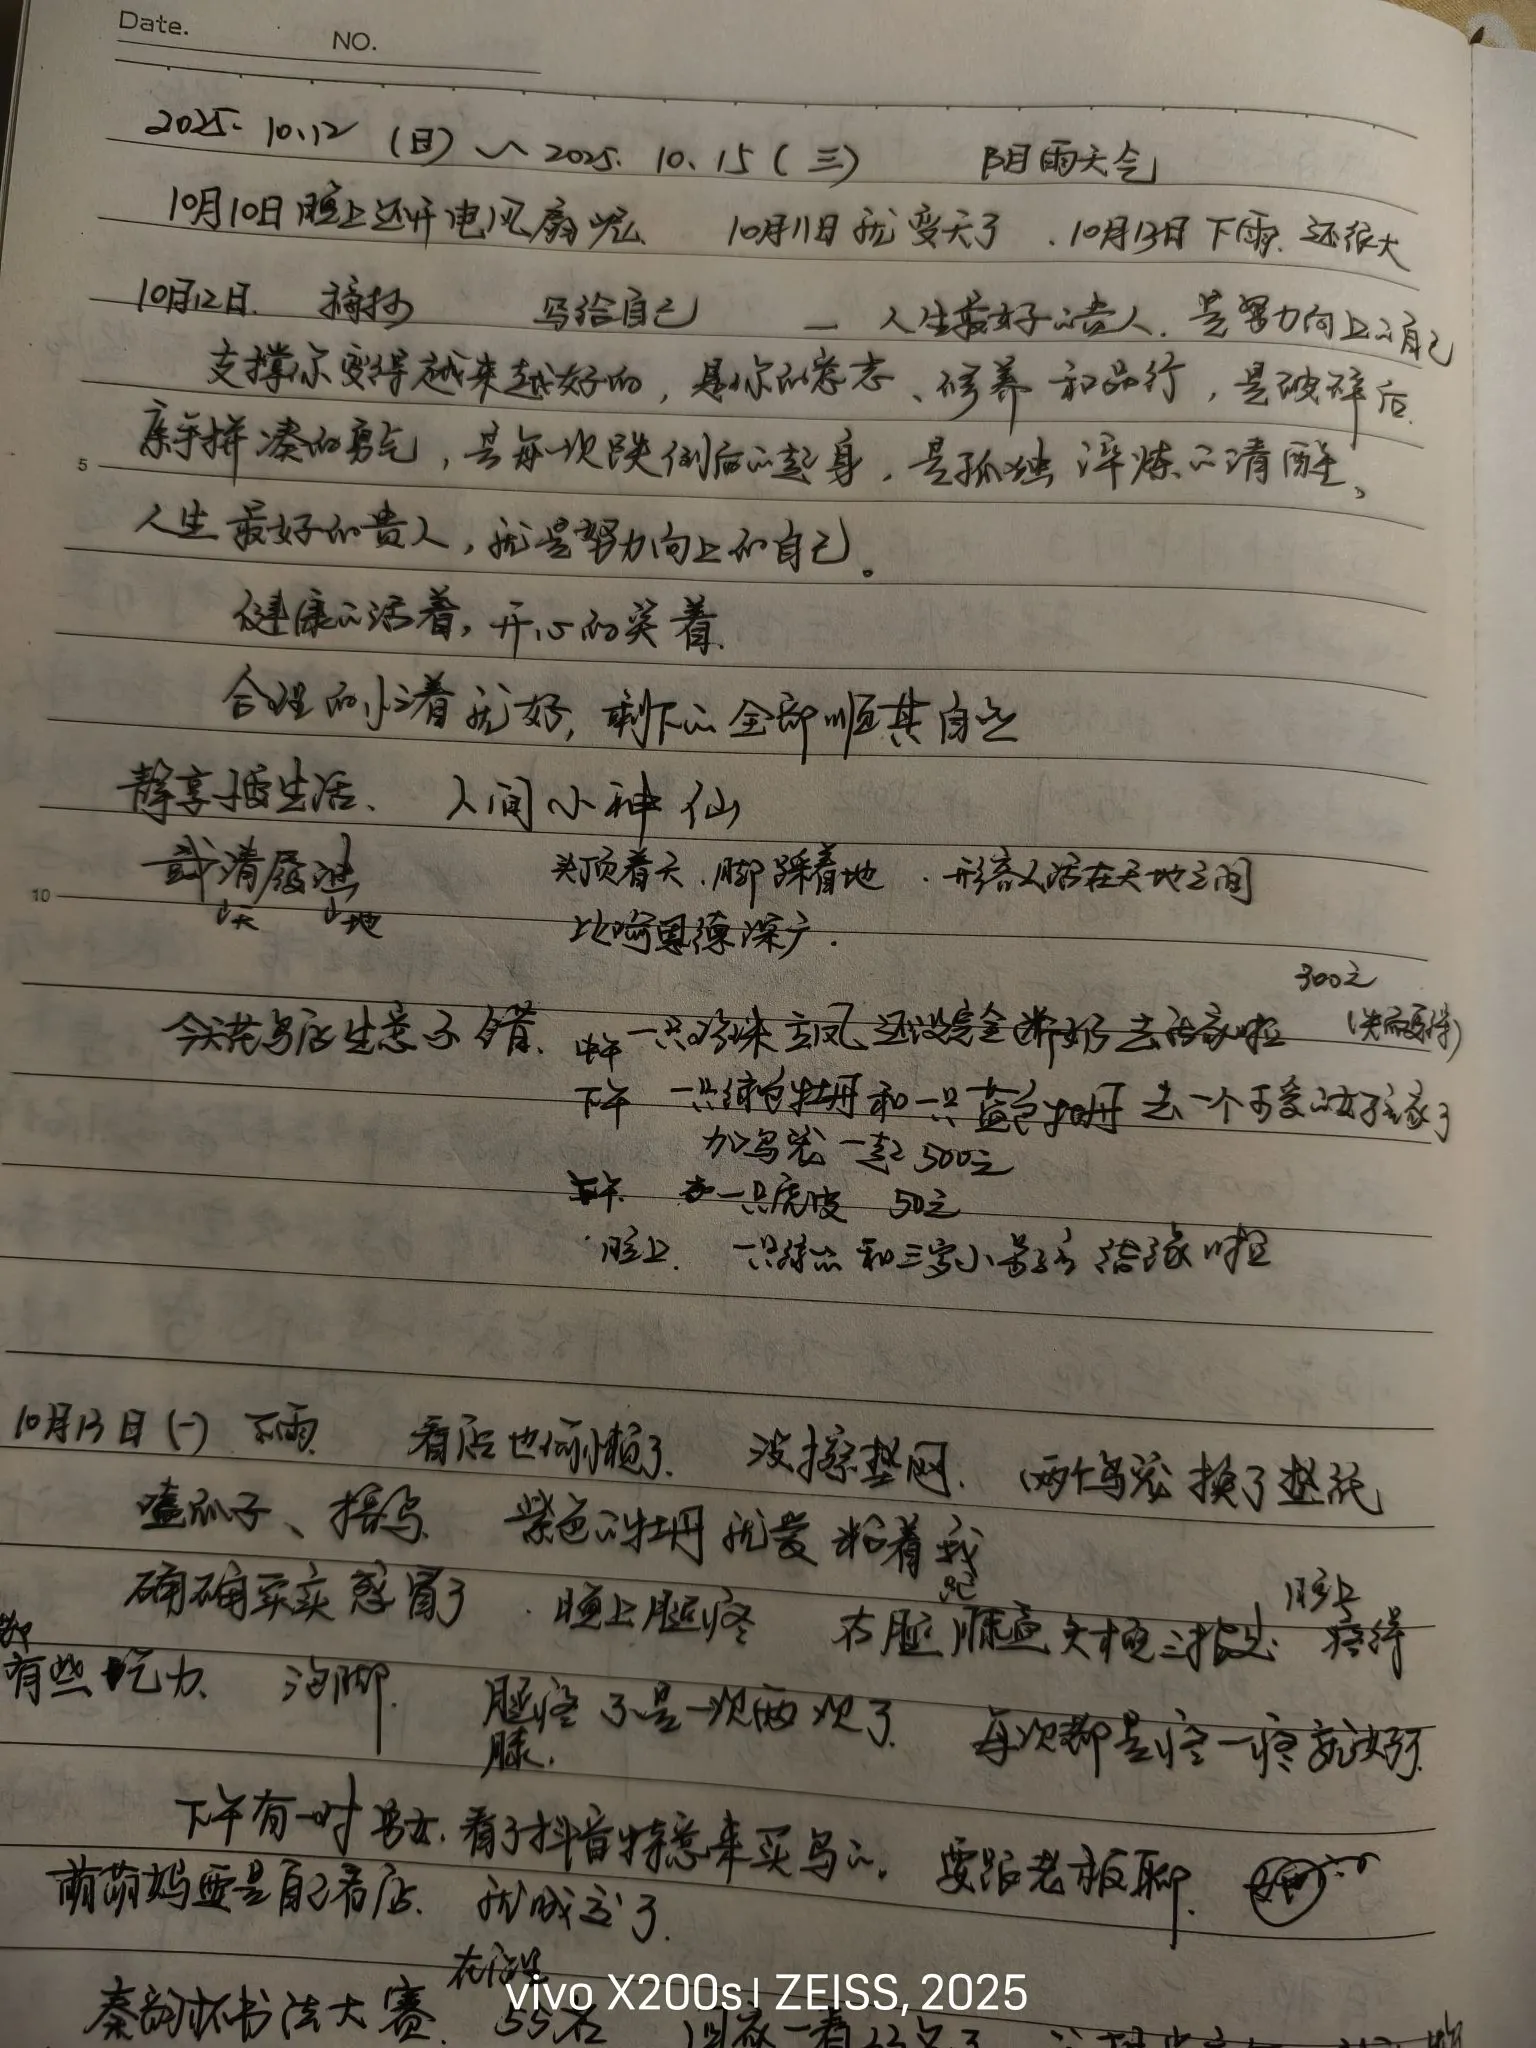 Date.
NO.
2025. 10.12 (日) ~ 2025. 10.15 (三) 阴雨天气
10月10日晚上还开电风扇呢、 10月11日就变天了 . 10月13日下雨. 还很大
10月12日. 摘抄 写给自己 — 人生最好的贵人. 是努力向上的自己
支撑你变得越来越好的, 是你的意志、修养和品行, 是破碎后
亲手拼凑的勇气, 是每一次跌倒后的起身, 是孤独淬炼的清醒、
5
人生最好的贵人, 就是努力向上的自己。
健康的活着, 开心的笑着.
合理的忙着就好, 剩下的全部顺其自然
静享慢生活、 人间小神仙
戴清履浊 头顶着天.脚踩着地 . 形容人活在天地之间
10
↓天 ↓地 比喻恩德深广.
300元
今天花鸟店生意不错、 中午 一只珍珠玄凤还没完全断奶去新家啦
下午 一只绿色牡丹和一只蓝色牡丹去一个可爱的女孩家了
加鸟笼一起500元
下午. 一只虎皮 50元
晚上. 一只 和三 小 啦
10月13日(一) 下雨. 看店也偷懒了. 没擦垫网. 两个鸟笼换了垫纸
嗑瓜子、撸鸟. 紫色的牡丹就爱粘着我
确确实实感冒了 . 晚上腿疼 右腿膝盖 三指处 疼得
晚上
都有些吃力、 泡脚. 腿疼不是一次两次了. 每次都是疼一疼就好了.
膝.
下午有一对男女.看了抖音特意来买鸟的. 要跟老板聊.
萌萌妈要是自己看店. 就成交了.
在店里
秦 杯书法大赛. 55名
vivo X200s | ZEISS, 2025